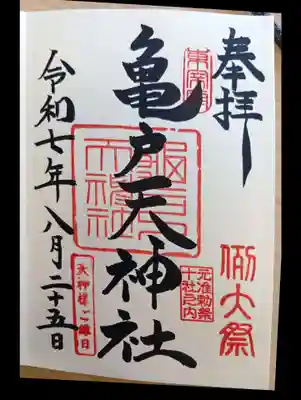 奉拝
東宰府
亀戸天神社
亀戸天神社
元准勅祭
十社之内
例大祭
令和七年八月二十五日
天神様ご縁日